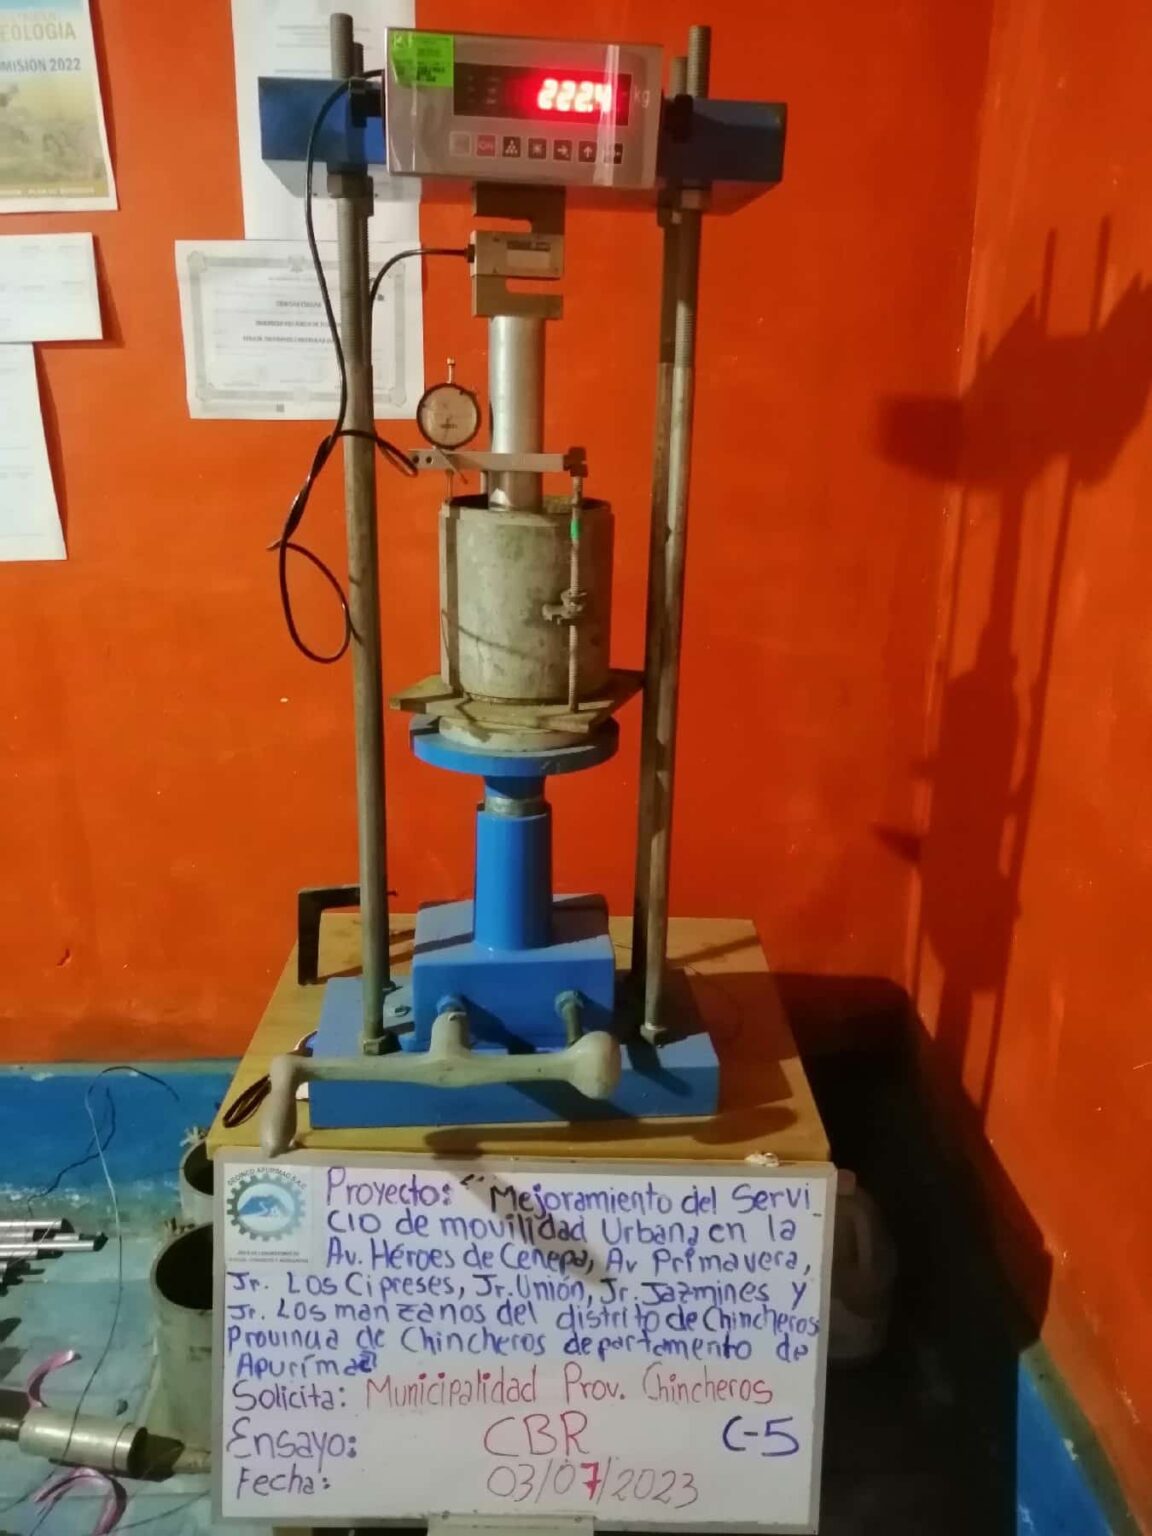 EOLOGIA
MISIÓN 2022
222.4 kg
GEOINCO APURIMAC S.A.C.
Proyecto: "Mejoramiento del Servi_
cio de movilidad Urbana en la
Av. Héroes de Cenepa, Av Primavera,
Jr. Los Cipreses, Jr. Unión, Jr. Jazmines y
Jr. Los manzanos del distrito de Chincheros
Provincia de Chincheros departamento de
Apurímac"
Solicita: Municipalidad Prov. Chincheros
Ensayo: CBR C-5
Fecha: 03/07/2023